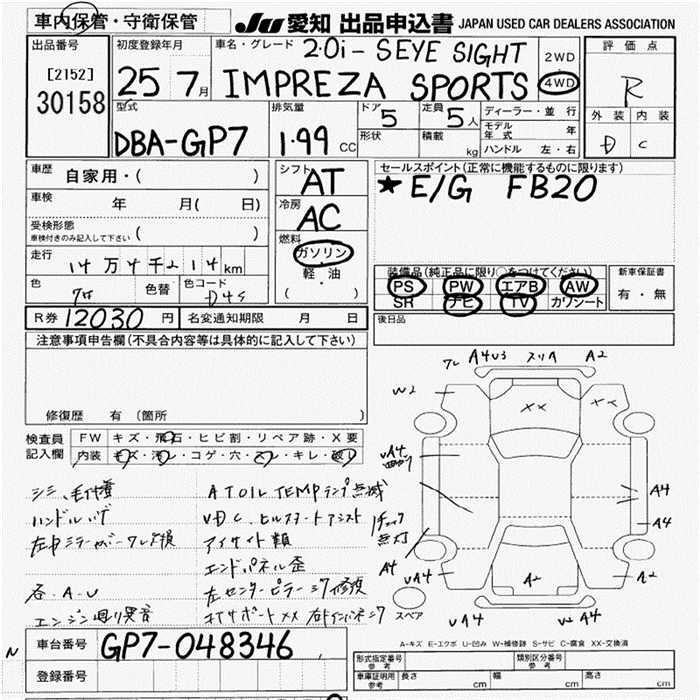 車内保管・守衛保管
JU 愛知 出品申込書 JAPAN USED CAR DEALERS ASSOCIATION
出品番号
[2152]
30158
初度登録年月
25 7月
車名・グレード
2.0i-S EYE SIGHT
IMPREZA SPORTS
2WD
4WD
評価点
R
外装 内装
D C
型式
DBA-GP7
排気量
1.99 CC
ドア 5
形状
定員 5人
積載 kg
ディーラー・並行
モデル年式 年
ハンドル 左・右
車歴 自家用・( )
車検 年 月( 日)
受検形態
車検付きのみ記入して下さい ( )
走行 14万4千214km
色 クロ 色替 色コード D4S
シフト AT
冷房 AC
燃料
ガソリン
軽・油
( )
セールスポイント(正常に機能するものに限ります)
★ E/G FB20
装備品(純正品に限り○をつけてください)
PS PW エアB AW
SR ナビ TV カワシート
新車保証書
有・無
R券 12030円 名変通知期限 月 日
後日品
注意事項申告欄(不具合内容等は具体的に記入して下さい)
修復歴 有(箇所 )
検査員記入欄
FW キズ・飛石・ヒビ割・リペア跡・X要
内装 キズ・汚レ・コゲ・穴・スレ・キレ・破レ
ハンドルハゲ
各・A・U
エンジン廻り異音
AT OIL TEMPランプ点滅
VDC、ヒルスタートアシスト
アイサイト類
チェック無灯
エンドパネル歪
スペア
A4U3 スリヘ A2
W2
XX
XX
A4
A4
A4
UA4
A2
A2
UA4
A4
A-キズ E-エクボ U-凹み W-補修跡 S-サビ C-腐食 XX-交換済
車台番号 GP7-048346
登録番号
N
形式指定番号 参考
類別区分番号 参考
車庫証明用 参考 長さ cm 幅 cm 高さ cm